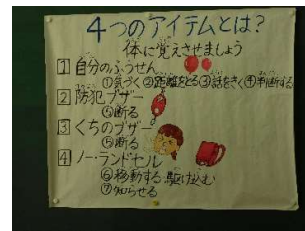 4つのアイテムとは?
体に覚えさせましょう
1 自分のふうせん
①気づく ②距離をとる ③話をきく ④判断する
2 防犯ブザー
⑤断る
3 くちのブザー
⑤断る
4 ノー・ランドセル
⑥移動する 駆け込む
⑦知らせる